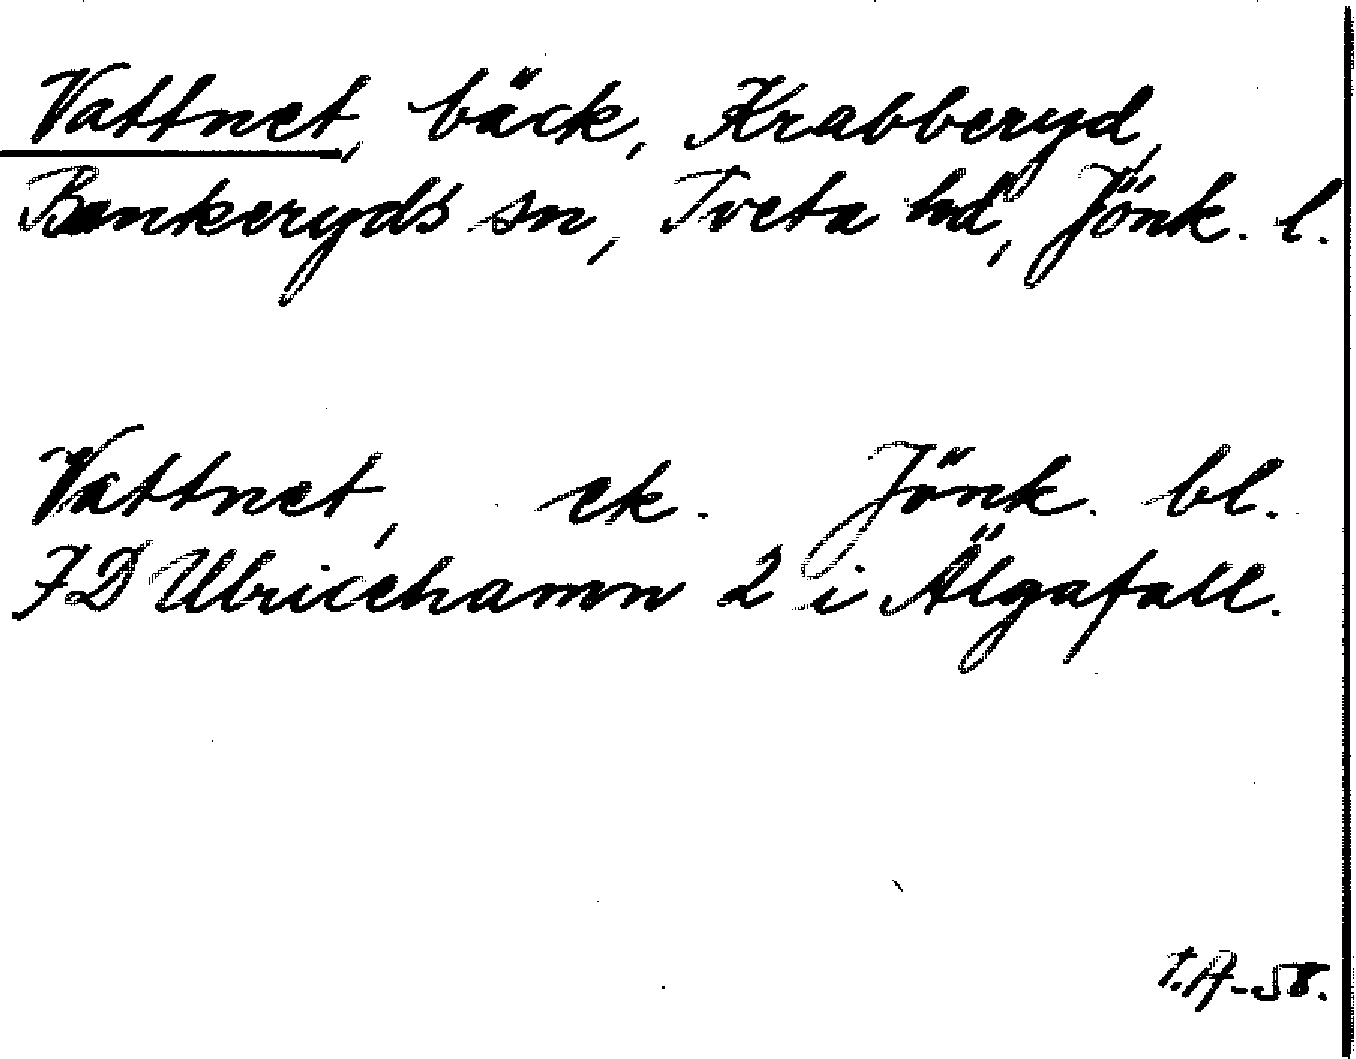 Vattnet, bäck, Krabberyd,
Bankeryds sn, Tveta hd, Jönk. l.
Vattnet, ek. Jönk. bl.
7D Ulricehamn 2 i Älgafall.
T.A-58.